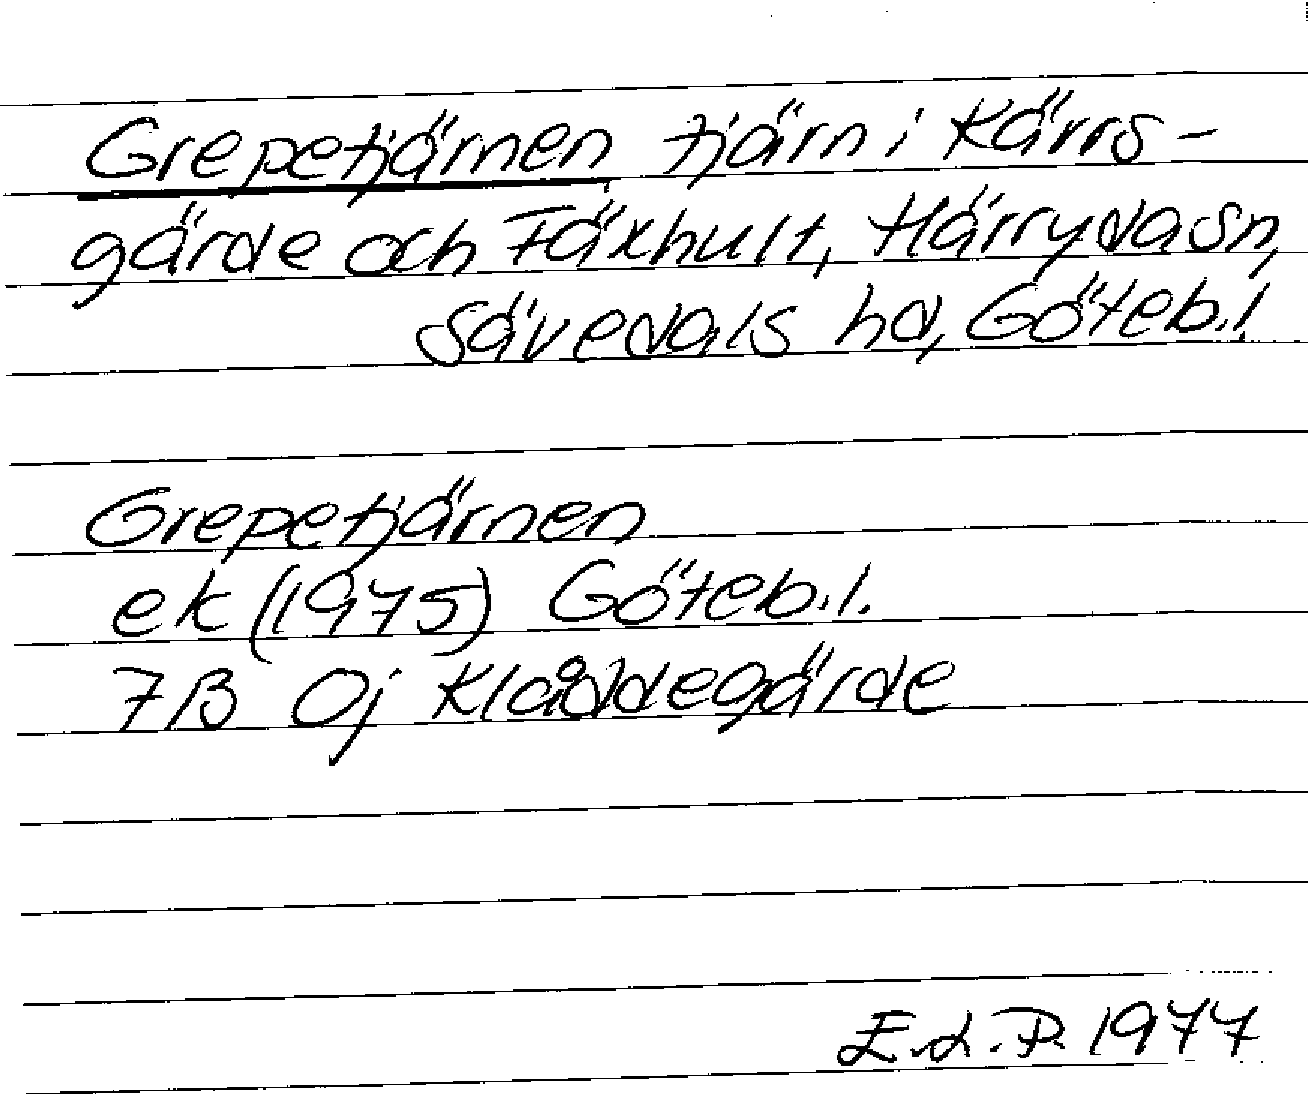 Grepetjärnen tjärn i Kärrs-
gärde och Fäxhult, Härryda sn,
Sävedals hd, Göteb.l.
Grepetjärnen
ek (1975) Göteb.l.
7B 0j Klåddegärde
E.L.P. 1977